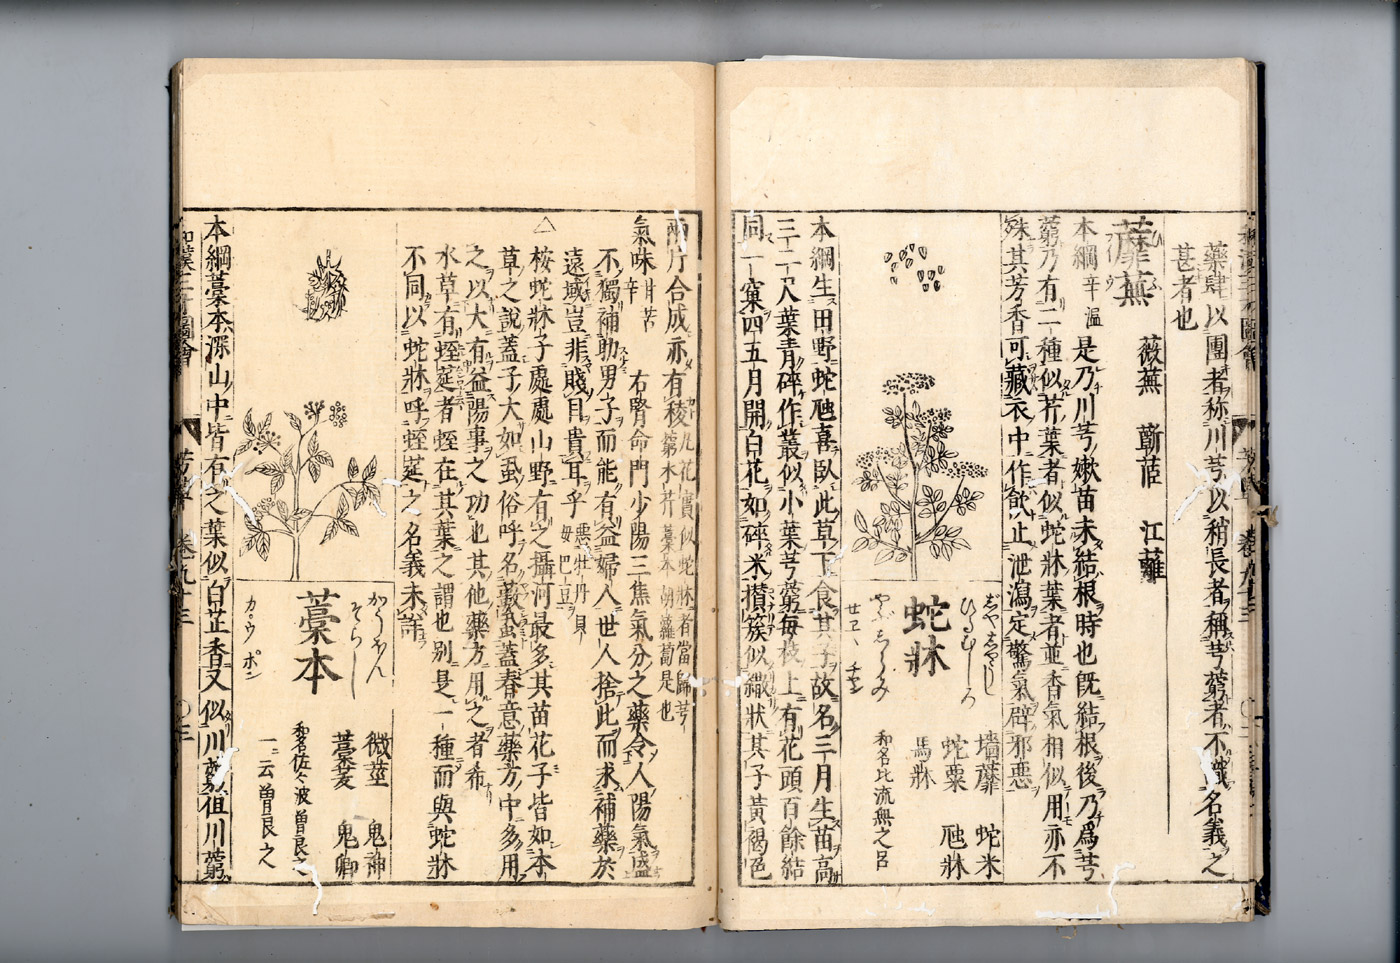 藥肆以團者称川芎以稍長者稱芎藭者不識名義之
甚者也
蘼蕪　薇蕪　蘄茝　江蘺
本綱辛溫是乃川芎嫩苗未結根時也既結根後乃爲芎
藭乃有二種似芹葉者似蛇牀葉者並香氣相似用亦不
殊其芳香可藏衣中作飲止泄瀉定驚氣辟邪惡
蛇牀
じやじやうし
ひるむしろ
やぶじらみ
墻蘼　蛇米
蛇粟　虺牀
馬牀
和名比流無之呂
本綱生田野蛇虺喜臥此草下食其子故名三月生苗高
三二尺葉青碎作叢似小葉芎藭每枝上有花頭百餘結
同一窠四五月開白花如碎米攅簇似繖狀其子黃褐色
兩片合成亦有稜凡花實似蛇牀者當歸芎
藭水芹藁本胡蘿蔔是也
氣味苦辛甘　右腎命門少陽三焦氣分之藥令人陽氣盛
不獨補助男子而能有益婦人世人捨此而求補藥於
遠域豈非賤目貴耳乎惡牡丹貝
母巴豆
△桉蛇牀子處處山野有之攝河最多其苗花子皆如本
草之說蓋子大如虱俗呼名藪虱蓋春意藥方中多用
之以大有益陽事之功也其他藥方用之者希
水草有蛭莚者蛭在其葉之謂也別是一種而與蛇牀
不同以蛇牀呼蛭莚之名義未詳
藁本
かうほん
そらし
カ゜ウ ポン
微莖　鬼神
藁茇　鬼卿
和名佐々波曽良之
一云曽良之
本綱藁本深山中皆有之葉似白芷香又似川藭但川藭